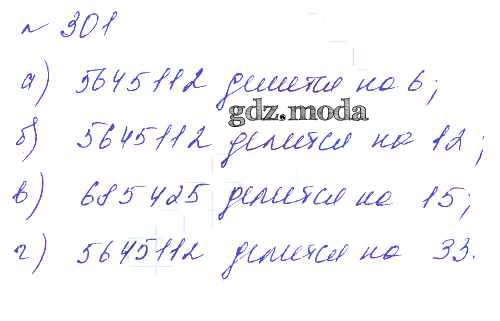 № 301
а) 5645112 делится на 6;
gdz.moda
б) 5645112 делится на 12;
в) 685425 делится на 15;
г) 5645112 делится на 33.